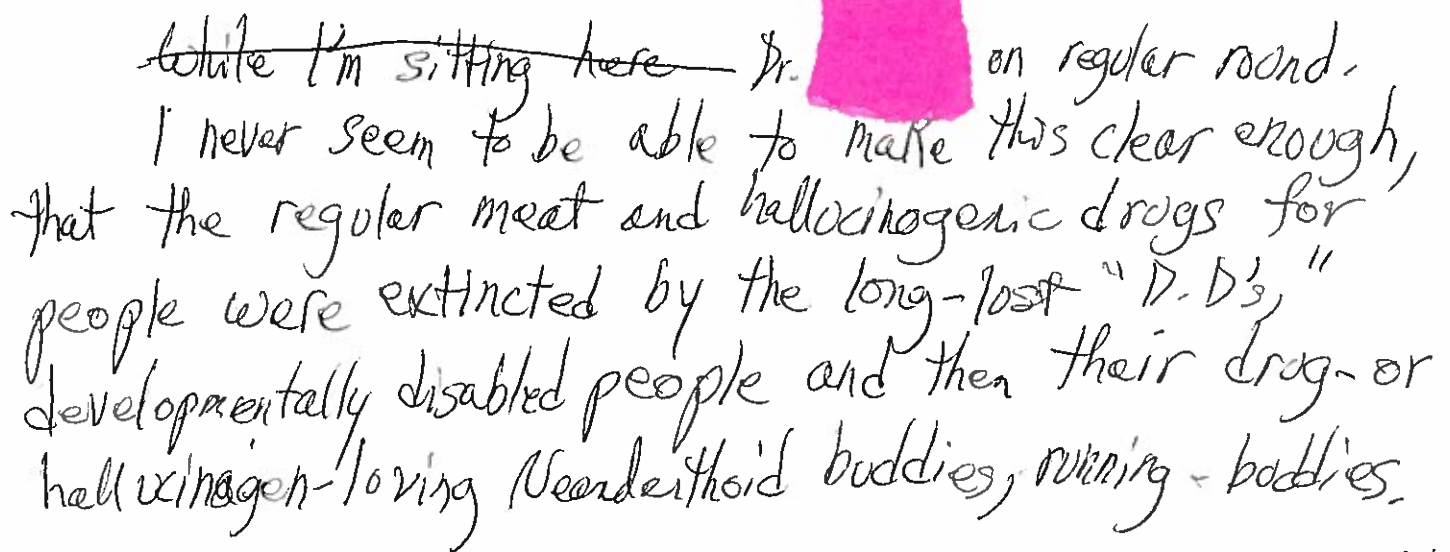 While I'm sitting here Dr. on regular round.
I never seem to be able to make this clear enough,
that the regular meat and hallucinogenic drugs for
people were extincted by the long-lost "D.D's,"
developmentally disabled people and then their drug- or
hallucinagen-loving Neanderthoid buddies, running-buddies.